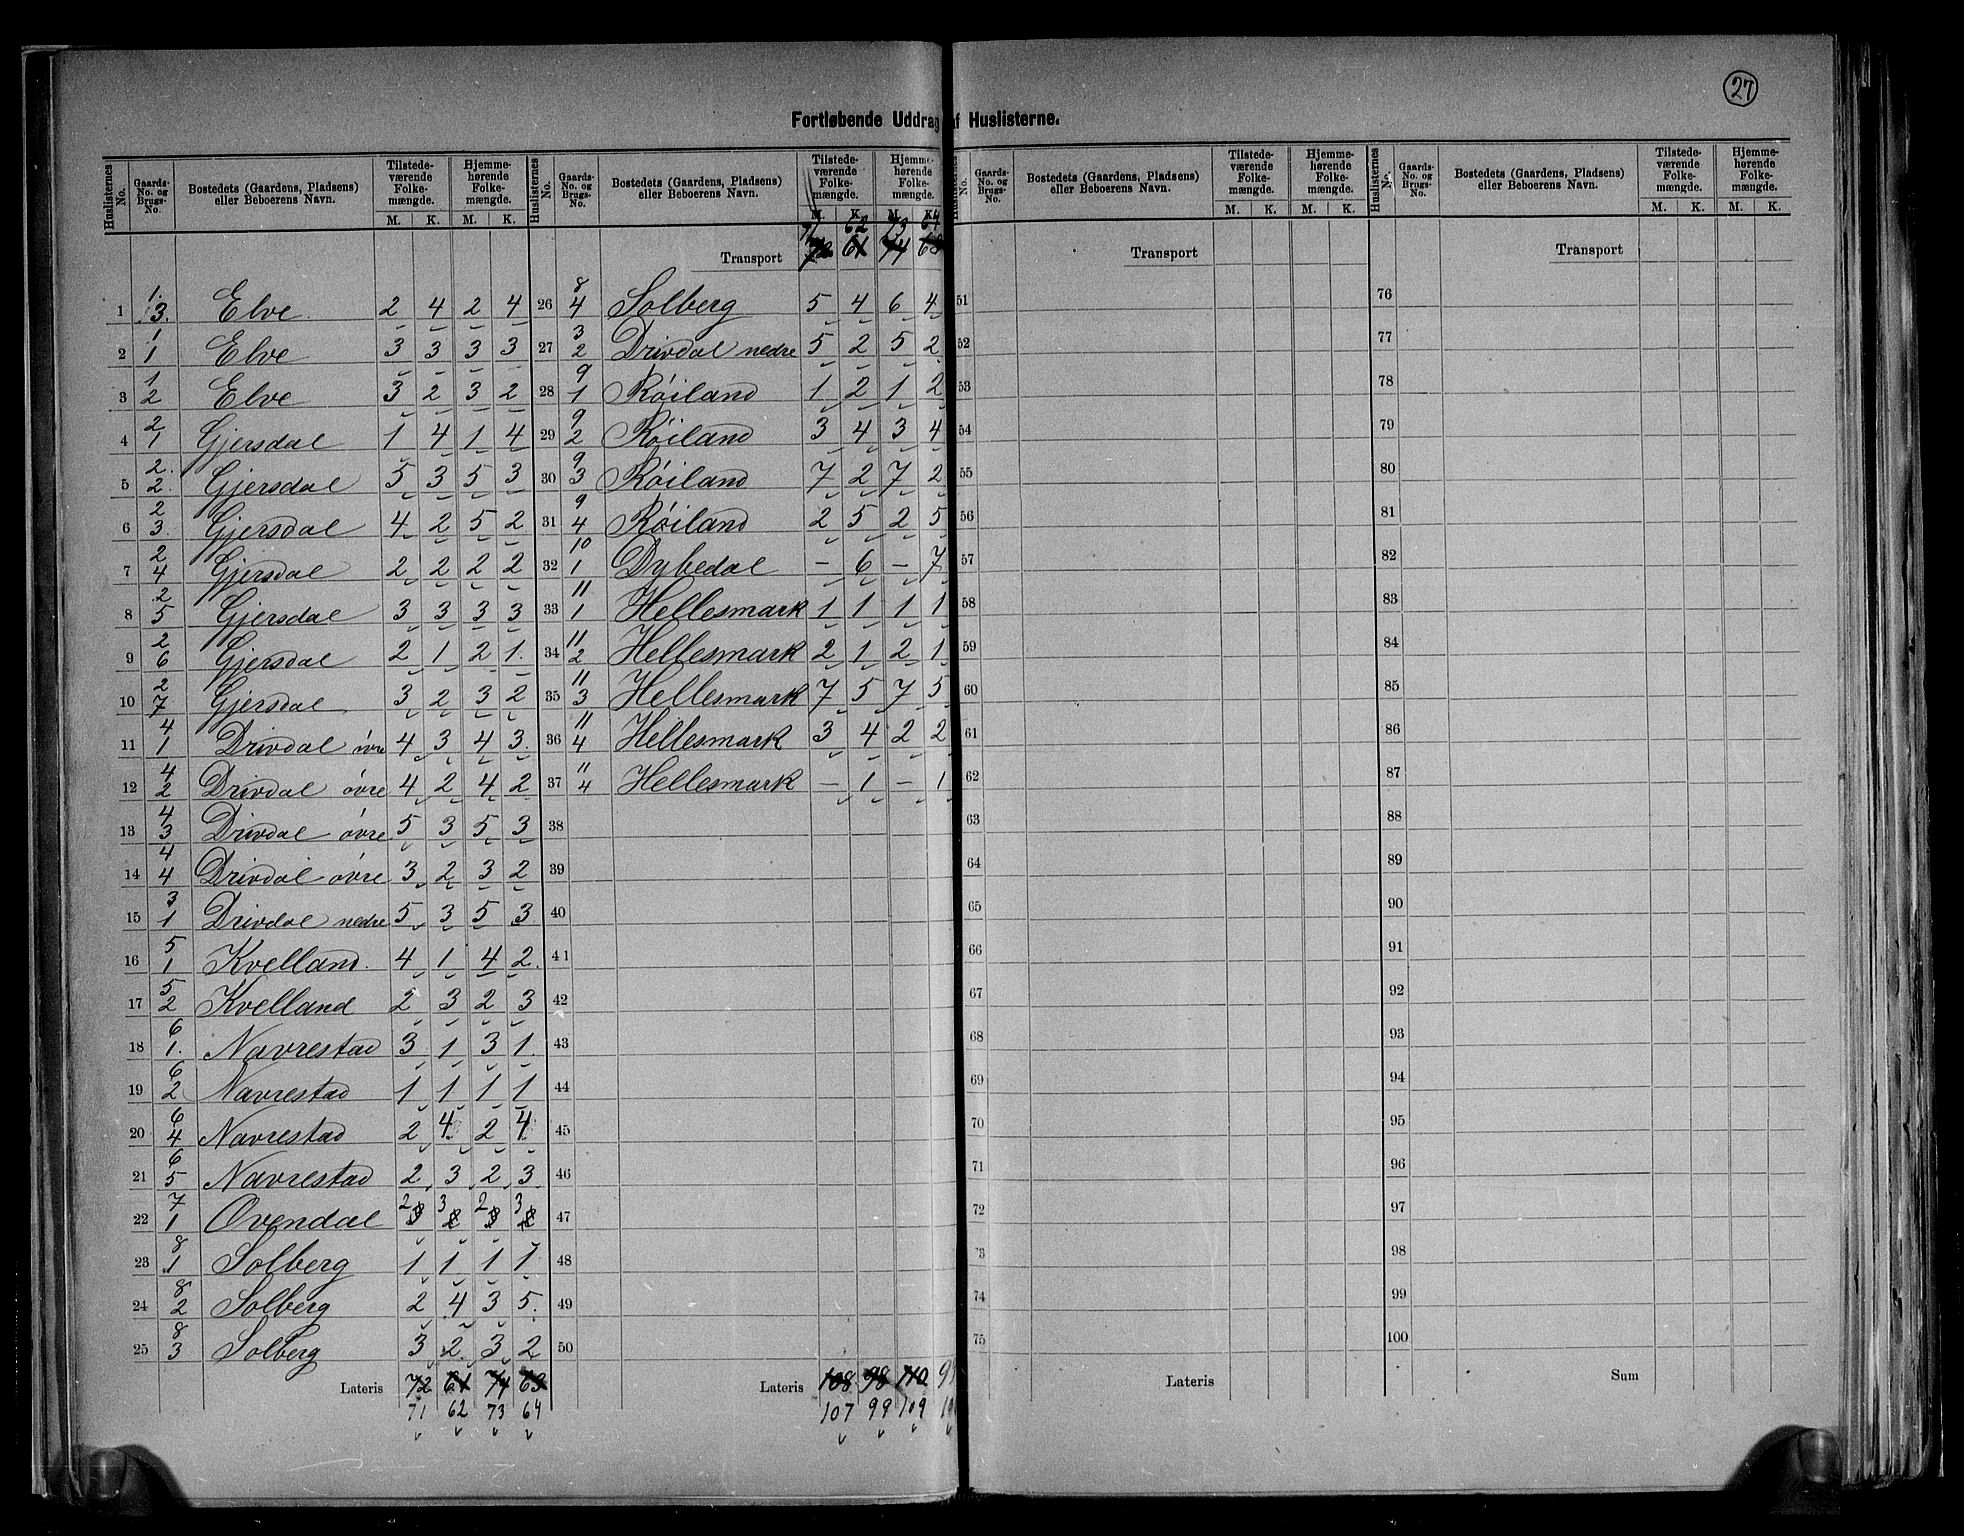 27
Fortløbende Uddrag af Huslisterne.
Huslisternes No. | Gaards-No. og Brugs-No. | Bostedets (Gaardens, Pladsens) eller Beboerens Navn. | Tilstedeværende Folkemængde. M. K. | Hjemmehørende Folkemængde. M. K.
1 | 1. 3. | Elve | 2 | 4 | 2 | 4
2 | 1 1 | Elve | 3 | 3 | 3 | 3
3 | 1 2 | Elve | 3 | 2 | 3 | 2
4 | 2 1 | Gjersdal | 1 | 4 | 1 | 4
5 | 2. 2. | Gjersdal | 5 | 3 | 5 | 3
6 | 2 3. | Gjersdal | 4 | 2 | 5 | 2
7 | 2 4 | Gjersdal | 2 | 2 | 2 | 2
8 | 2 5 | Gjersdal | 3 | 3 | 3 | 3
9 | 2 6 | Gjersdal | 2 | 1 | 2 | 1.
10 | 2 7 | Gjersdal | 3 | 2 | 3 | 2
11 | 4 1 | Drivdal øvre | 4 | 3 | 4 | 3.
12 | 4 2 | Drivdal øvre | 4 | 2 | 4 | 2
13 | 4 3 | Drivdal øvre | 5 | 3 | 5 | 3
14 | 4 4 | Drivdal øvre | 3 | 2 | 3 | 2
15 | 3 1 | Drivdal nedre | 5 | 3 | 5 | 3
16 | 5 1 | Kvelland. | 4 | 1 | 4 | 2.
17 | 5 2 | Kvelland | 2 | 3 | 2 | 3
18 | 6 1. | Navrestad | 3 | 1 | 3 | 1.
19 | 6 2 | Navrestad | 1 | 1 | 1 | 1
20 | 6 4 | Navrestad | 2 | 4 | 2 | 4
21 | 6 5 | Navrestad | 2 | 3 | 2 | 3
22 | 7 1 | Ovendal | 2 | 3 | 2 | 3
23 | 8 1 | Solberg | 1 | 1 | 1 | 1
24 | 8 2 | Solberg | 2 | 4 | 3 | 5.
25 | 8 3 | Solberg | 3 | 2 | 3 | 2
Lateris 72 61 74 63
71 62 73 64
Huslisternes No. | Gaards-No. og Brugs-No. | Bostedets (Gaardens, Pladsens) eller Beboerens Navn. | Tilstedeværende Folkemængde. M. K. | Hjemmehørende Folkemængde. M. K.
71 62 73 64
Transport 72 61 74 63
26 | 8 4 | Solberg | 5 | 4 | 6 | 4
27 | 3 2 | Drivdal nedre | 5 | 2 | 5 | 2
28 | 9 1 | Røiland | 1 | 2 | 1 | 2
29 | 9 2 | Røiland | 3 | 4 | 3 | 4
30 | 9 3 | Røiland | 7 | 2 | 7 | 2
31 | 9 4 | Røiland | 2 | 5 | 2 | 5
32 | 10 1 | Dybedal | – | 6 | – | 7
33 | 11 1 | Hellesmark | 1 | 1 | 1 | 1
34 | 11 2 | Hellesmark | 2 | 1 | 2 | 1
35 | 11 3 | Hellesmark | 7 | 5 | 7 | 5
36 | 11 4 | Hellesmark | 3 | 4 | 2 | 2
37 | 11 4 | Hellesmark | – | 1 | – | 1
38
39
40
41
42
43
44
45
46
47
48
49
50
Lateris 108 98 110
107 99 109
No. | Gaards-No. og Brugs-No. | Bostedets (Gaardens, Pladsens) eller Beboerens Navn. | Tilstedeværende Folkemængde. M. K. | Hjemmehørende Folkemængde. M. K.
Transport
51
52
53
54
55
56
57
58
59
60
61
62
63
64
65
66
67
68
69
70
71
72
73
74
75
Lateris
Huslisternes No. | Gaards-No. og Brugs-No. | Bostedets (Gaardens, Pladsens) eller Beboerens Navn. | Tilstedeværende Folkemængde. M. K. | Hjemmehørende Folkemængde. M. K.
Transport
76
77
78
79
80
81
82
83
84
85
86
87
88
89
90
91
92
93
94
95
96
97
98
99
100
Sum